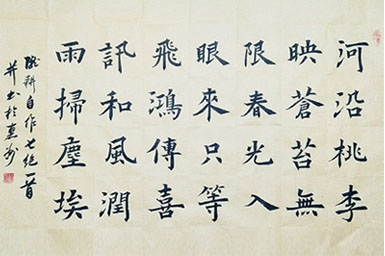 河沿桃李
映蒼苔無
限春光入
眼來只等
飛鴻傳喜
訊和風潤
雨掃塵埃
自作七絕一首
并书於